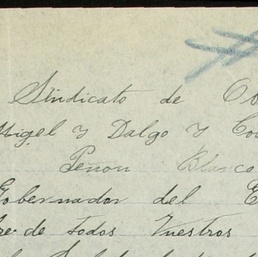 Sindicato de O
Migel y Dalgo y Co
Peñon Blanco
Gobernador del E
re de todos Vuestros